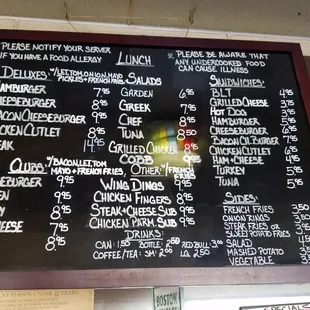 PLEASE NOTIFY YOUR SERVER
IF YOU HAVE A FOOD ALLERGY
LUNCH
PLEASE BE AWARE THAT
ANY UNDERCOOKED FOOD
CAN CAUSE ILLNESS
DELUXES W/LET, TOM, ONION, MAYO
PICKLES + FRENCH FRIES
HAMBURGER 7.95
CHEESEBURGER 8.95
BACON CHEESEBURGER 9.95
CHICKEN CUTLET 8.95
STEAK 14.95
CLUBS W/BACON, LET, TOM
MAYO + FRENCH FRIES
9.95
9.95
8.95
CHEESE 7.95
8.95
SALADS
GARDEN 6.95
GREEK 7.95
CHEF 8.95
TUNA 8.50
GRILLED CHICKEN 8.95
COBB 9.95
OTHER: W/FRENCH FRIES
WING DINGS 9.95
CHICKEN FINGERS 8.95
STEAK + CHEESE SUB 9.95
CHICKEN PARM SUB 9.95
DRINKS:
CAN: 1.50 BOTTLE: 2.50 RED BULL: 3.00
COFFEE/TEA: SM: 2.00 LG 2.50
SANDWICHES:
BLT 4.75
GRILLED CHEESE 3.95
HOT DOG 3.95
HAMBURGER
CHEESEBURGER
BACON CH. BURGER
CHICKEN CUTLET
HAM + CHEESE
TURKEY 5.95
TUNA 5.95
SIDES:
FRENCH FRIES 3.50
ONION RINGS
STEAK FRIES OR
SWEET POTATO FRIES
SALAD
MASHED POTATO
VEGETABLE
BOSTON
SPECIALS